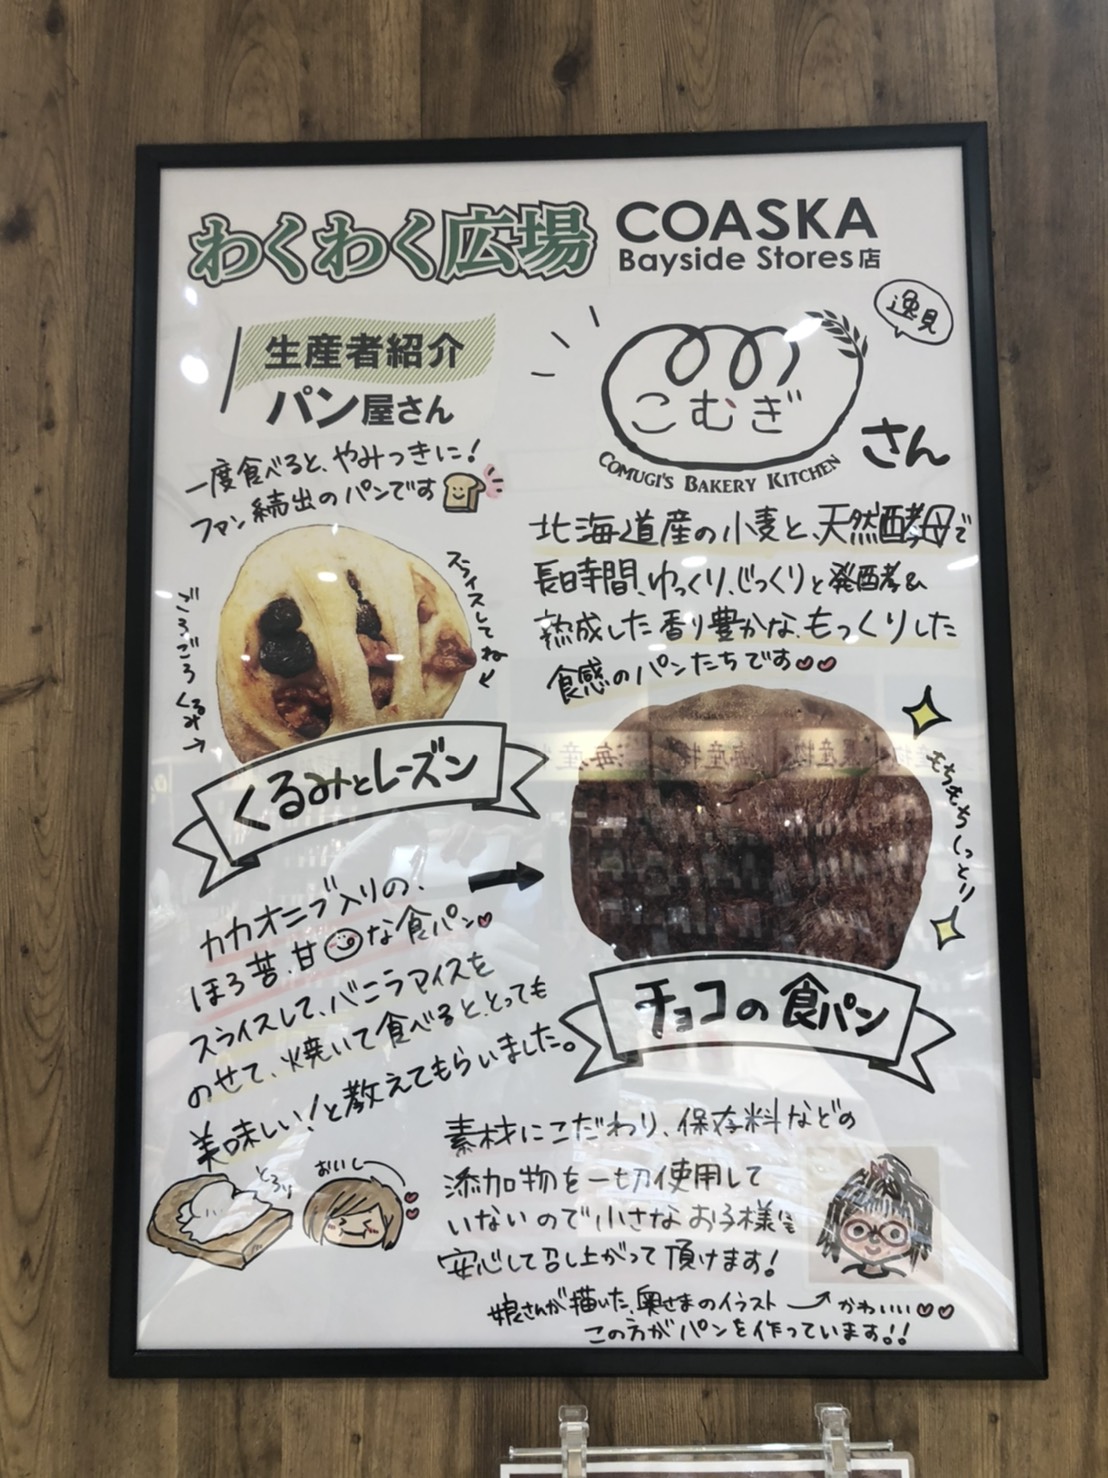 わくわく広場
COASKA
Bayside Stores店
逸見
生産者紹介
パン屋さん
こむぎ
COMUGI'S BAKERY KITCHEN
さん
一度食べると、やみつきに!
ファン続出のパンです
北海道産の小麦と、天然酵母で
長時間、ゆっくり、じっくりと発酵&
熟成した香り豊かな、もっくりした
食感のパンたちです♥♥
ごろごろくるみ
スライスしてね
くるみとレーズン
もちもちしっとり
カカオニブ入りの、
ほろ苦、甘な食パン♥
スライスして、バニラアイスを
のせて、焼いて食べると、とっても
美味しい!と教えてもらいました。
チョコの食パン
とろり
おいしー
素材にこだわり、保存料などの
添加物を一切使用して
いないので小さなお子様も
安心して召し上がって頂けます!
娘さんが描いた、奥さまのイラスト
かわいい♥♥
この方がパンを作っています!!